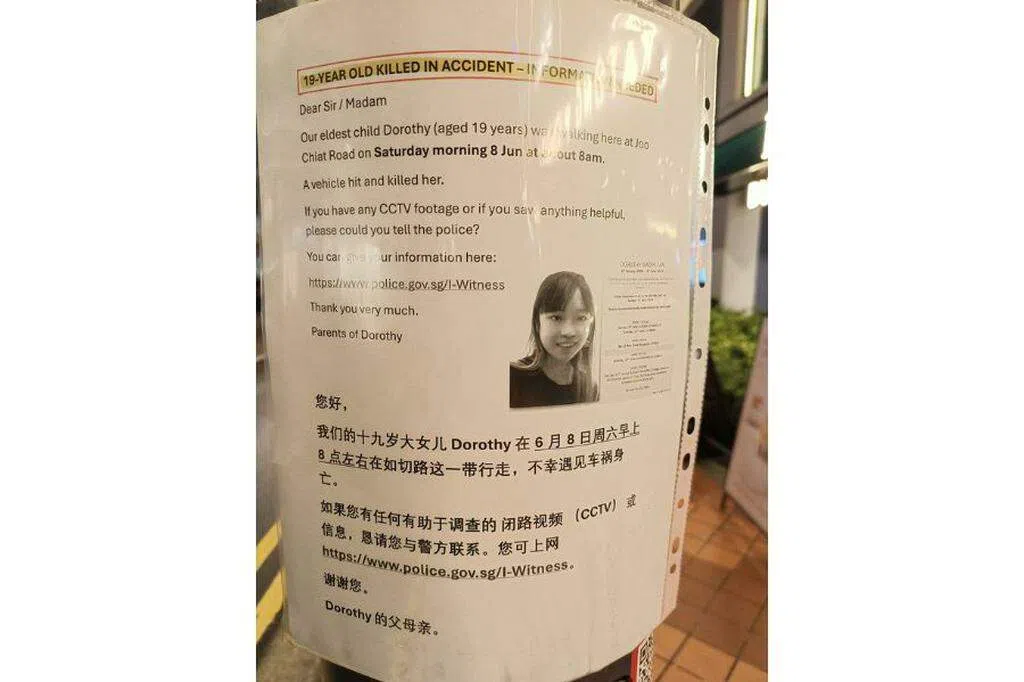 19-YEAR OLD KILLED IN ACCIDENT – INFORMAT EDED
Dear Sir / Madam
Our eldest child Dorothy (aged 19 years) was walking here at Joo
Chiat Road on Saturday morning 8 Jun at about 8am.
A vehicle hit and killed her.
If you have any CCTV footage or if you saw anything helpful,
please could you tell the police?
You can give your information here:
https://www.police.gov.sg/I-Witness
Thank you very much.
Parents of Dorothy
您好，
我们的十九岁大女儿 Dorothy 在 6 月 8 日周六早上
8 点左右在如切路这一带行走，不幸遇见车祸身
亡。
如果您有任何有助于调查的 闭路视频 （CCTV）或
信息，恳请您与警方联系。您可上网
https://www.police.gov.sg/I-Witness。
谢谢您。
Dorothy 的父母亲。